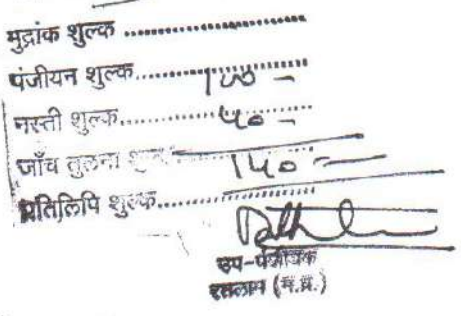 मुद्रांक शुल्क ....................
पंजीयन शुल्क.................... १००-
नस्ती शुल्क.................... ५०-
जाँच तुलना शुल्क १५०-
प्रतिलिपि शुल्क....................
उप-पंजीयक
रतलाम (म.प्र.)